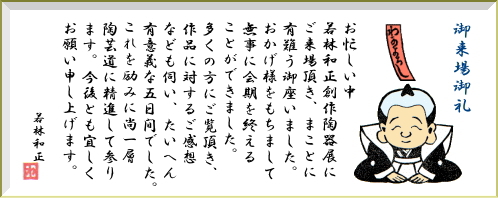 御来場御礼
お忙しい中
若林和正創作陶器展に
ご来場頂き、まことに
有難う御座いました。
おかげ様をもちまして
無事に会期を終える
ことができました。
多くの方にご覧頂き、
作品に対するご感想
なども伺い、たいへん
有意義な五日間でした。
これを励みに尚一層
陶芸道に精進して参り
ます。今後とも宜しく
お願い申し上げます。
若林和正